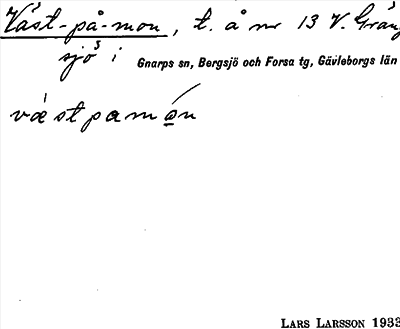 Väst-på-mon, t. å nr 13 V. Gräng
sjö i Gnarps sn, Bergsjö och Forsa tg, Gävleborgs län
væstpamo̲n
LARS LARSSON 1933